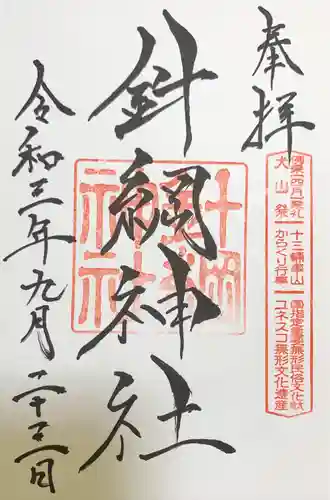 奉拝
例祭(四月)祭礼
犬山祭
十三輌車山
からくり行事
国指定重要無形民俗文化財
ユネスコ無形文化遺産
針綱神社
令和三年九月二十三日